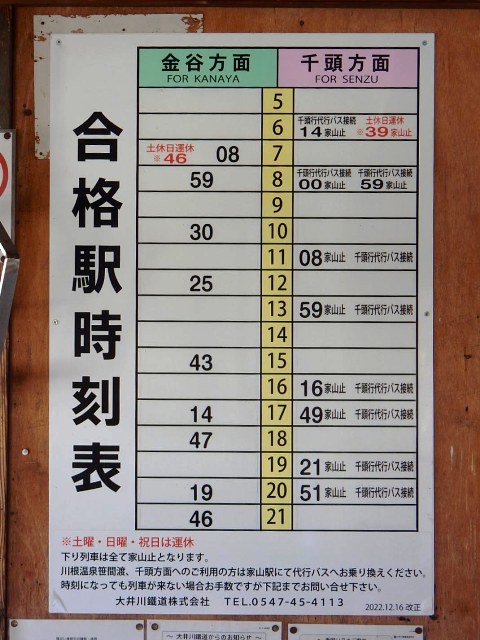 合格駅時刻表
金谷方面 千頭方面
FOR KANAYA FOR SENZU
5
6 千頭行代行バス接続 土休日運休
14家山止 ※39家山止
土休日運休
※46 08 7
59 8 千頭行代行バス接続 千頭行代行バス接続
00家山止 59家山止
9
30 10
11 08家山止 千頭行代行バス接続
25 12
13 59家山止 千頭行代行バス接続
14
43 15
16 16家山止 千頭行代行バス接続
14 17 49家山止 千頭行代行バス接続
47 18
19 21家山止 千頭行代行バス接続
19 20 51家山止 千頭行代行バス接続
46 21
※土曜・日曜・祝日は運休
下り列車は全て家山止となります。
川根温泉笹間渡、千頭方面へのご利用の方は家山駅にて代行バスへお乗り換えください。
時刻になっても列車が来ない場合お手数ですが下記までお問い合せ下さい。
大井川鐵道株式会社 TEL.0547-45-4113
2022.12.16 改正
～ 大井川鐵道からのお知らせ ～